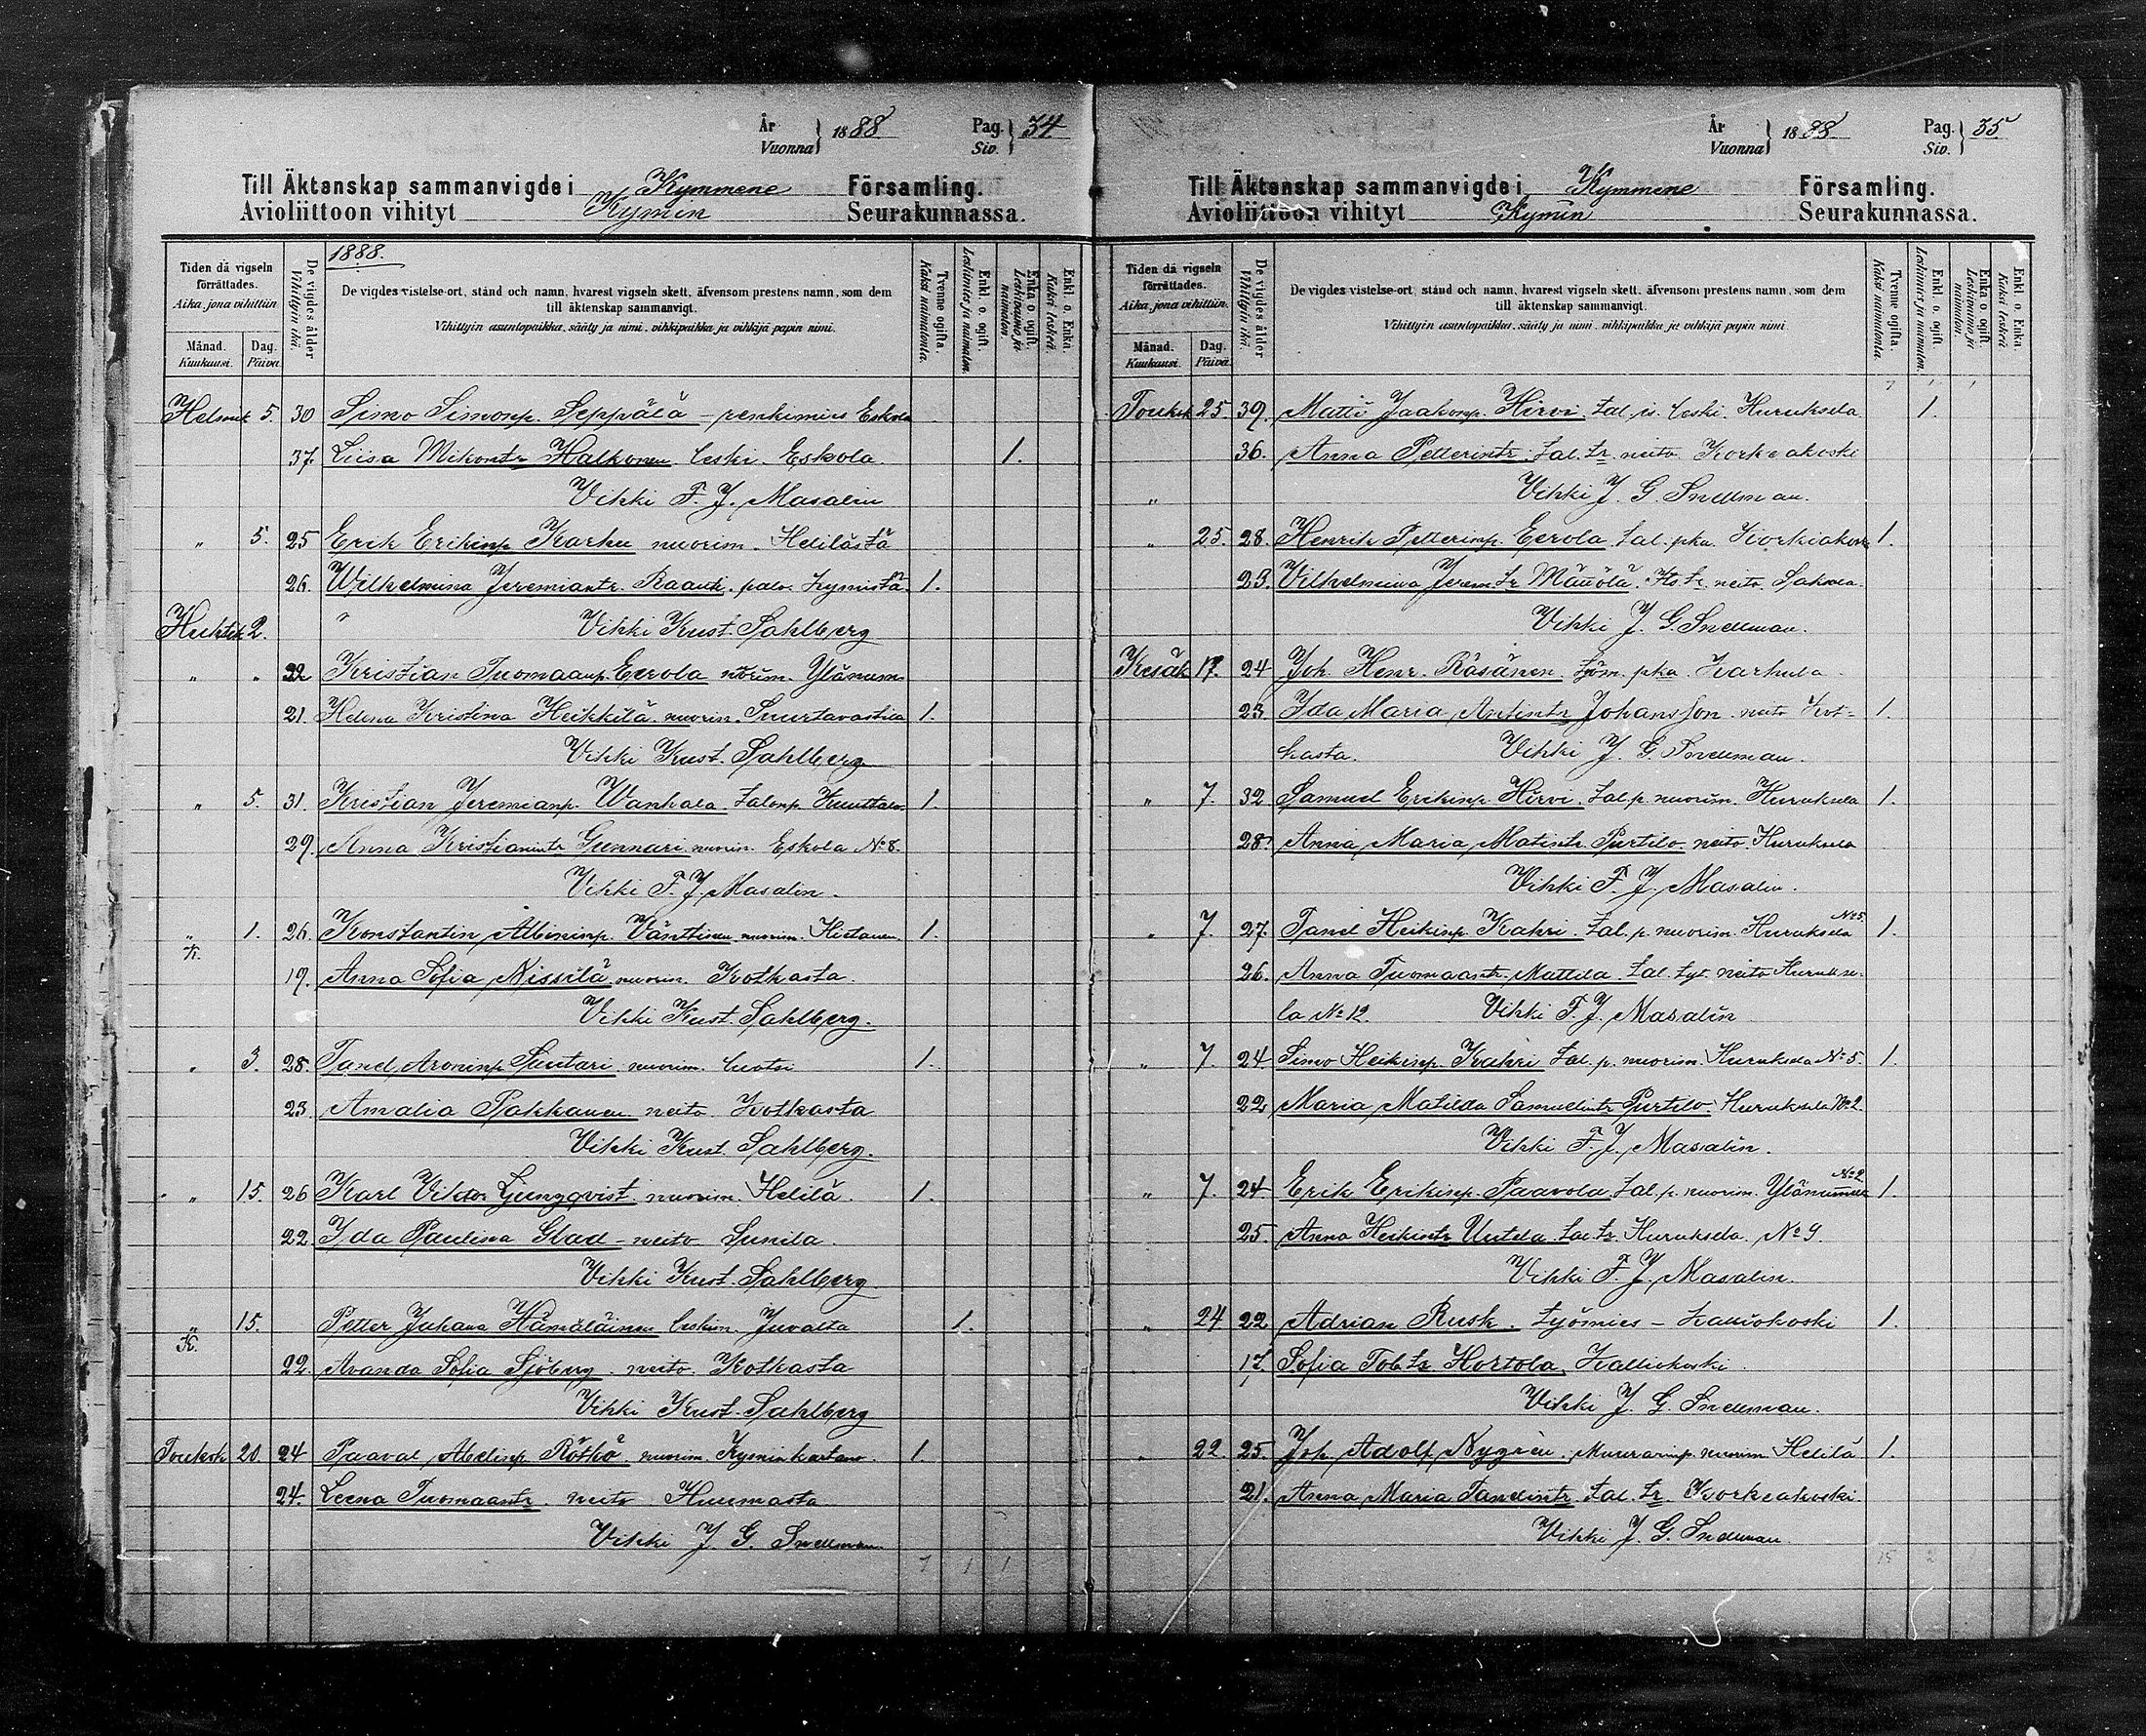 År Vuonna 1888 Pag. Siv. 34
Till Äktenskap sammanvigde i Kymmene Församling.
Avioliittoon vihityt Kymin Seurakunnassa.
1888.
Tiden då vigseln förrättades.
Aika, jona vihittiin
Månad. Kuukausi. Dag. Päivä
De vigdes ålder
Vihittyin ikä.
De vigdes vistelse-ort, stånd och namn, hvarest vigseln skett, äfvensom prestens namn, som dem
till äktenskap sammanvigt.
Vihittyin asuntopaikka, sääty ja nimi, vihkipaikka ja vihkijä papin nimi.
Tvenne ogifta. Kaksi naimatonta.
Enkl. o. ogift. Leskimies ja naimaton.
Enka o. ogift. Leskivaimo ja naimaton.
Enkl. o. Enka. Kaksi leskeä.
Helmik 5. 30 Simo Simonp. Seppälä - renkimies Eskola
37. Liisa Mikontr Halkonen leski. Eskola. 1.
Vihki F. J. Masalin
" 5. 25 Erik Erikinp Karhu nuorim. Helilästä
26. Wilhelmina Jeremiantr. palv. Kymistä. 1.
Huhtik 2. " Vihki Kust. Sahlberg
" " 22 Kristian Tuomaanp. Eerola nuorim. Ylänum
21. Helena Kristina Heikkilä. nuorin. Suurtavastila 1.
Vihki Kust. Sahlberg
" 5. 31. Kristian Jeremianp. Wanhala talonp. 1.
29. Anna Kristianintr Gunnari nuorin. Eskola No 8.
Vihki F. J. Masalin.
" K. 1. 26. Konstantin Albininp. Vänttinen nuorim. Hietanen. 1.
19. Anna Sofia Nissilä nuorin. Kotkasta.
Vihki Kust. Sahlberg.
" 3. 28. Taneli Aroninp Suutari nuorim. luotsi 1.
23. Amalia Pakkanen neito Kotkasta
Vihki Kust. Sahlberg.
" 15. 26 Karl Viktor Ljungqvist. nuorim. Helilä. 1.
22. Ida Paulina Glad - neito Sunila.
Vihki Kust. Sahlberg
" K. 15. Petter Juhana Hämäläinen leskim. Juvalta 1.
22. Avanda Sofia Sjöberg. neito. Kotkasta
Vihki Kust. Sahlberg
Toukok 20. 24 Paaval Abelinp Rötkö nuorim. Kyminkartano. 1.
24. Leena Tuomaantr. neito
Vihki J. G. Snellman.
7 1 1
År Vuonna 1888 Pag. Siv. 35
Till Äktenskap sammanvigde i Kymmene Församling.
Avioliittoon vihityt Kymin Seurakunnassa.
Tiden då vigseln förrättades.
Aika, jona vihittiin.
Månad. Kuukausi. Dag. Päivä
De vigdes ålder
Vihittyin ikä.
De vigdes vistelse-ort, stånd och namn, hvarest vigseln skett, äfvensom prestens namn, som dem
till äktenskap sammanvigt.
Vihittyin asuntopaikka, sääty ja nimi, vihkipaikka ja vihkijä papin nimi.
Tvenne ogifta. Kaksi naimatonta.
Enkl. o. ogift. Leskimies ja naimaton.
Enka o. ogift. Leskivaimo ja naimaton.
Enkl. o. Enka. Kaksi leskeä.
7 1 1
Toukok 25. 39. Matti Jaakonp. Hirvi. tal. is. leski. Huruksela 1.
36. Anna Petterintr. tal. tr. neito Korkeakoski
" Vihki J. G. Snellman.
" 25. 28. Henrik Petterinp. Eerola tal. pka. 1.
23. Vilhelmiina Jerem. tr neito.
Vihki J. G. Snellman.
Kesäk 17. 24 Joh. Henr. Räsänen. työm. pka. Karhula.
23. Ida Maria Antintr Johansson. neito Kot- 1.
kasta. Vihki J. G. Snellman.
" 7. 32 Samuel Erikinp. Hirvi. tal. p. nuorim. Huruksela 1.
28. Anna Maria Matintr. Purtilo. neito. Huruksela
Vihki F. J. Masalin.
" 7. 27. Taneli Heikinp. Kahri. tal. p. nuorim. Huruksela No 5 1.
26. Anna Tuomaantr. Mattila. tal. tyt. neito Hurukse-
la No 12. Vihki F. J. Masalin
" 7. 24. Simo Heikinp. Kahri tal. p. nuorim. Huruksela No 5. 1.
22 Maria Matilda Samuelintr Purtilo. Huruksela No 2.
Vihki F. J. Masalin.
" 7. 24. Erik Erikinp. Paavola tal. p. nuorim. Ylänummela No 2 1.
25. Anna Heikintr Uutela tal. tr. Huruksela. No 9.
Vihki F. J. Masalin.
" 24 22 Adrian Rusk. työmies - Kalliokoski 1.
17. Sofia Tob. tr. Hortola. Kalliokoski.
Vihki J. G. Snellman.
" 22. 25. Joh. Adolf Nygrén. Muurarinp. nuorim. Helilä 1.
21. Anna Maria Tanelintr. tal. tr. Korkeakoski.
Vihki J. G. Snellman.
15 2